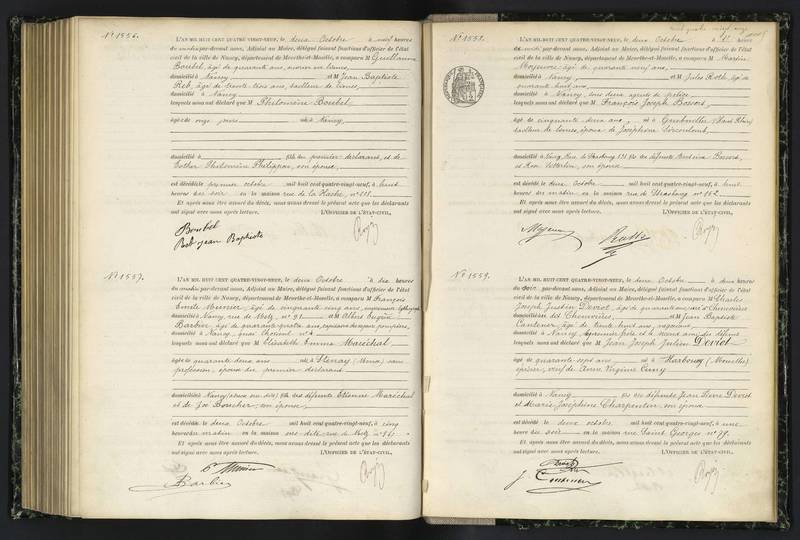 N° 1556.
L'AN MIL HUIT CENT QUATRE-VINGT-NEUF, le deux Octobre à neuf heures
du matin par-devant nous, Adjoint au Maire, délégué faisant fonctions d'officier de l'état
civil de la ville de Nancy, département de Meurthe-et-Moselle, a comparu M Guillaume
Boubel, âgé de quarante ans,
domicilié à Nancy et M Jean Baptiste
Reb, âgé de trente trois ans, tailleur de limes,
domicilié à Nancy
lesquels nous ont déclaré que M Philomène Boubel
âgé de onze jours né à Nancy,
domicilié à fille du premier déclarant, et de
Esther Philomène Philippar, son épouse,
est décédée le premier octobre mil huit cent quatre-vingt-neuf, à huit
heures du soir en la maison rue de la Hache, n° 111.
Et après nous être assuré du décès, nous avons dressé le présent acte que les déclarants
ont signé avec nous après lecture. L'OFFICIER DE L'ÉTAT-CIVIL,
Boubel
Reb jean Baptiste
N° 1557.
L'AN MIL HUIT CENT QUATRE-VINGT-NEUF, le deux Octobre à dix heures
du matin par-devant nous, Adjoint au Maire, délégué faisant fonctions d'officier de l'état
civil de la ville de Nancy, département de Meurthe-et-Moselle, a comparu M François
Emile Mennier, âgé de cinquante cinq ans,
domicilié à Nancy, rue de Metz, n° 91 et M Albert Eugène
Barbier, âgé de quarante quatre ans, capitaine des sapeurs pompiers,
domicilié à Nancy, quai n° 4
lesquels nous ont déclaré que M Elisabeth Emma Maréchal
âgée de quarante deux ans née à Stenay (Meuse) sans
profession, épouse du premier déclarant
domiciliée à Nancy fille des défunts Etienne Maréchal
et de Zoé Boucher, son épouse,
est décédée le deux Octobre mil huit cent quatre-vingt-neuf, à cinq
heures du matin en la maison rue de Metz n° 91
Et après nous être assuré du décès, nous avons dressé le présent acte que les déclarants
ont signé avec nous après lecture. L'OFFICIER DE L'ÉTAT-CIVIL,
Barbier
N° 1558.
L'AN MIL HUIT CENT QUATRE-VINGT-NEUF, le deux Octobre à heure
du par-devant nous, Adjoint au Maire, délégué faisant fonctions d'officier de l'état
civil de la ville de Nancy, département de Meurthe-et-Moselle, a comparu M Martin
âgé de quarante neuf ans,
domicilié à Nancy, et M Jules Roth, âgé de
quarante huit ans,
domicilié à Nancy, tous deux agents de police
lesquels nous ont déclaré que M François Joseph Bossert,
âgé de cinquante deux ans, né à Guebwiller (Haut Rhin)
tailleur de limes, époux de Joséphine
domicilié à Nancy, Rue de Strasbourg 131 fils des défunts Bossert,
et Rose son épouse
est décédé le deux octobre mil huit cent quatre-vingt-neuf, à huit
heures du matin en la maison rue de Strasbourg n° 162
Et après nous être assuré du décès, nous avons dressé le présent acte que les déclarants
ont signé avec nous après lecture. L'OFFICIER DE L'ÉTAT-CIVIL,
N° 1559.
L'AN MIL HUIT CENT QUATRE-VINGT-NEUF, le deux Octobre à deux heures
du soir par-devant nous, Adjoint au Maire, délégué faisant fonctions d'officier de l'état
civil de la ville de Nancy, département de Meurthe-et-Moselle, a comparu M Charles
Joseph Justin Deviot, âgé de quarante
domicilié à et M Jean Baptiste
Cantener, âgé de trente huit ans,
domicilié à Nancy,
lesquels nous ont déclaré que M Jean Joseph Julien Deviot
âgé de quarante sept ans né à Harbouey
épicier, veuf de Anne Virginie Cuny
domicilié à Nancy fils des défunts Jean Deviot
et Marie Joséphine Charpentier, son épouse
est décédé le deux octobre mil huit cent quatre-vingt-neuf, à une
heure du soir en la maison rue Saint Georges n° 99.
Et après nous être assuré du décès, nous avons dressé le présent acte que les déclarants
ont signé avec nous après lecture. L'OFFICIER DE L'ÉTAT-CIVIL,
J. Cantener